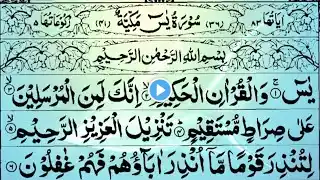 اٰيَاتُهَا ٨٣ (٣٦) سُوۡرَةُ يٰسٓ مَكِّيَّةٌ (٤١) رُكُوۡعَاتُهَا ٥
بِسۡمِ اللّٰهِ الرَّحۡمٰنِ الرَّحِيۡمِ
يٰسٓ ۚ‏ ١ وَالۡقُرۡاٰنِ الۡحَكِيۡمِ ٢ اِنَّكَ لَمِنَ الۡمُرۡسَلِيۡنَ ٣
عَلٰى صِرَاطٍ مُّسۡتَقِيۡمٍ ٤ تَنۡزِيۡلَ الۡعَزِيۡزِ الرَّحِيۡمِ ٥
لِتُنۡذِرَ قَوۡمًا مَّاۤ اُنۡذِرَ اٰبَآؤُهُمۡ فَهُمۡ غٰفِلُوۡنَ ٦